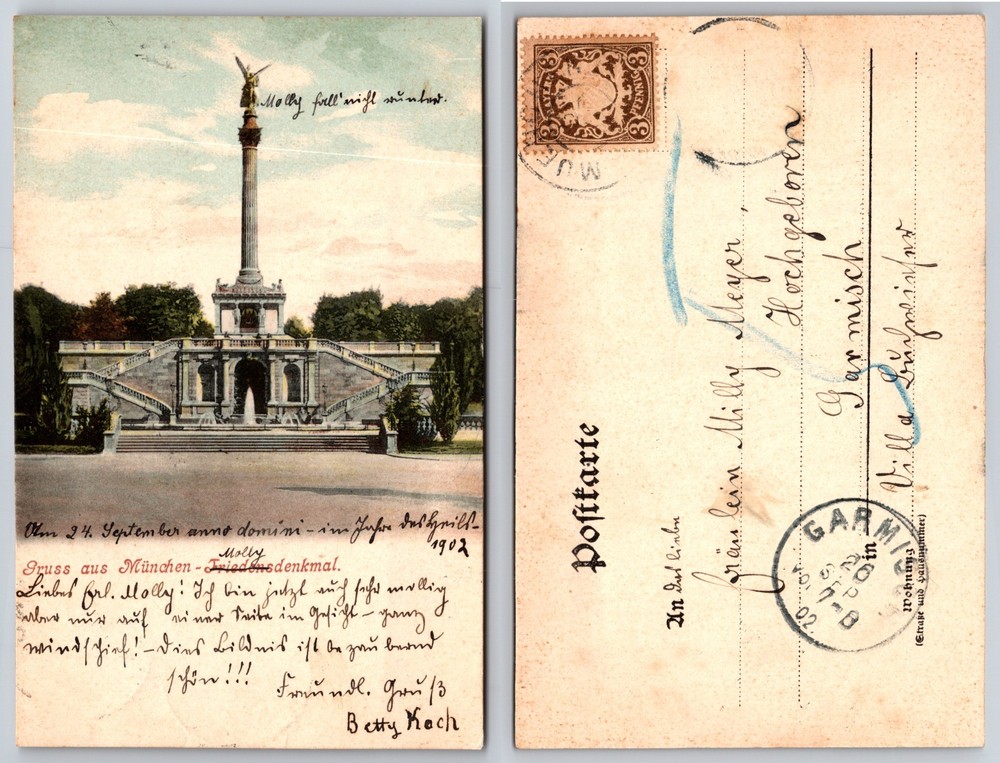 Molly fall' nicht runter.
Am 24. September anno domini – im Jahre des Heils –
1902
Molly
Gruss aus München - Friedensdenkmal.
Liebes Frl. Molly! Ich bin jetzt auch sehr mollig
aber nur auf einer Seite im Gesicht – ganz
windschief! – Dies Bildnis ist bezaubernd
schön!!!
Freundl. Gruß
Betty Koch
BAYERN
3 3
3 3
PFENNIG
MUE
Postkarte
An das liebe
Fräulein Milly Meyer,
Hochgeboren
Garmisch
in
Villa
Wohnung
(Straße und Hausnummer)
GARMIS
28
SEP
7-8
02